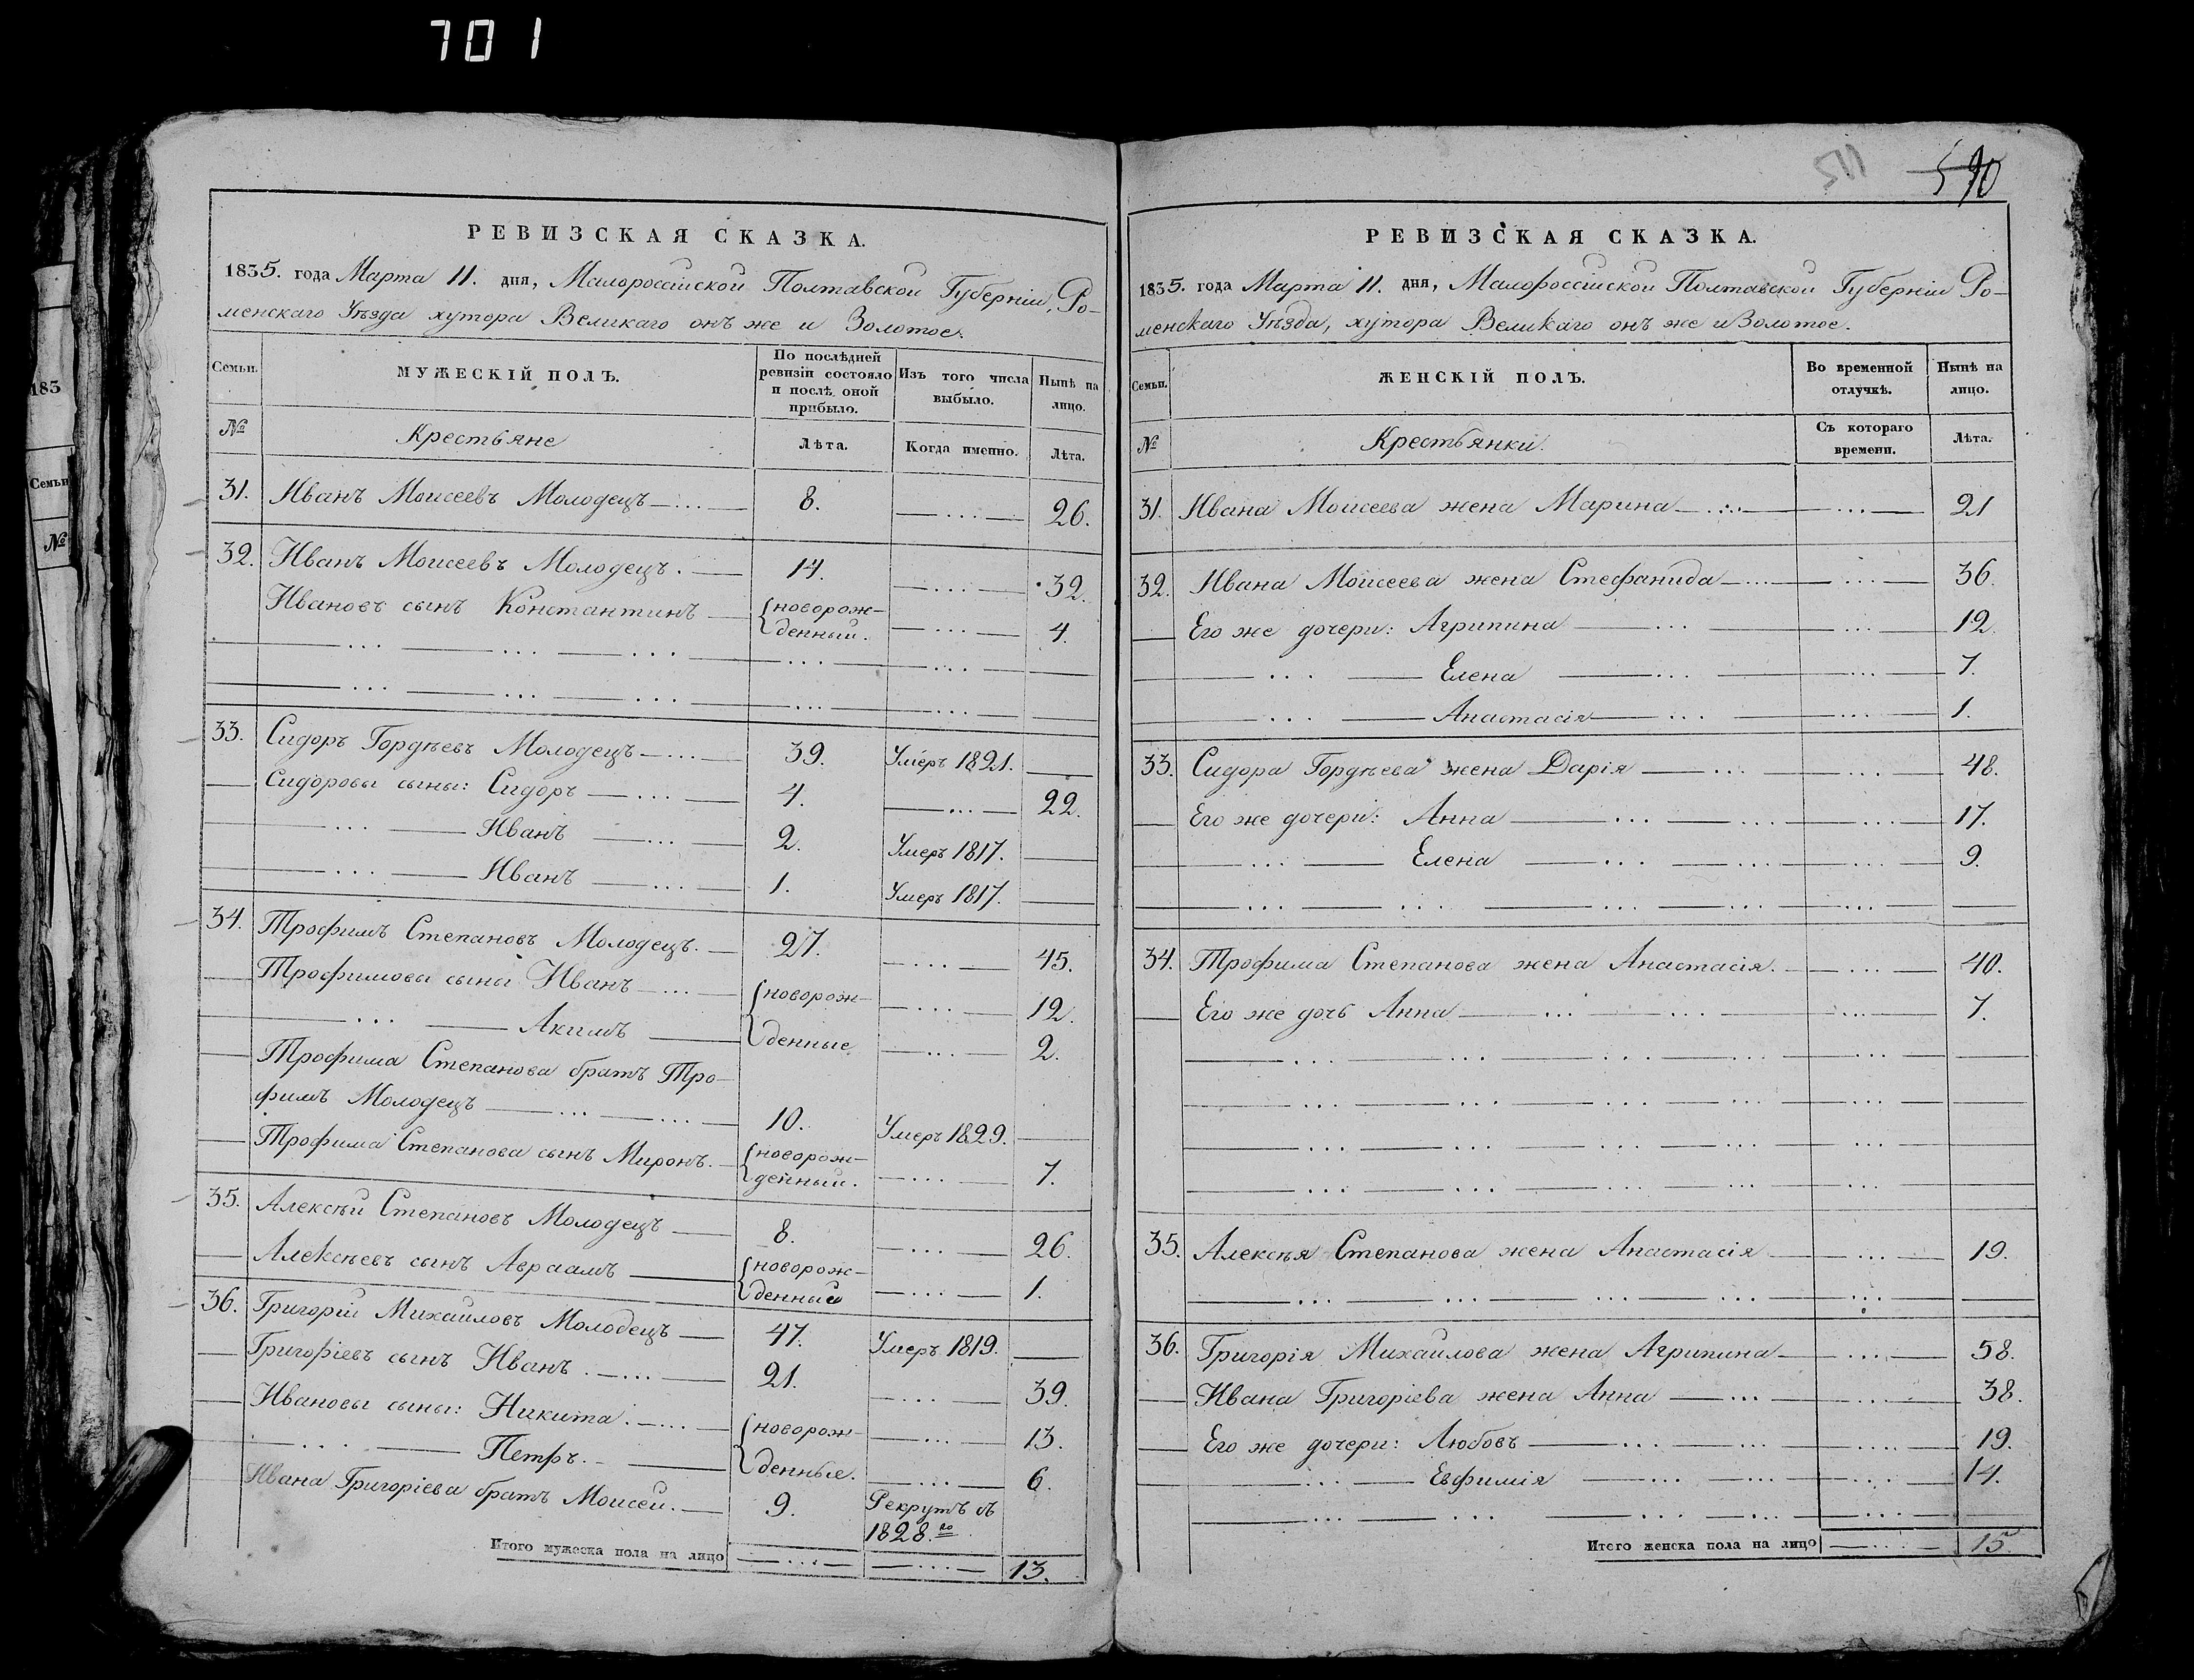 701
РЕВИЗСКАЯ СКАЗКА.
1835. года Марта 11. дня, Малороссійской Полтавской Губерніи, Ро-
менскаго Уѣзда хутора Великаго онъ же и Золотое.
Семьи. МУЖЕСКІЙ ПОЛЪ. По послѣдней ревизіи состояло и послѣ оной прибыло. Изъ того числа выбыло. Нынѣ на лицо.
№ Крестьяне Лѣта. Когда именно. Лѣта.
31. Иванъ Моисеевъ Молодецъ 8. 26.
32. Иванъ Моисеевъ Молодецъ. 14. 32.
Ивановъ сынъ Константинъ новорож-
денный. 4.
33. Сидоръ Гордѣевъ Молодецъ 39. Умеръ 1821.
Сидоровы сыны: Сидоръ 4. 22.
Иванъ 2. Умеръ 1817.
Иванъ 1. Умеръ 1817.
34. Трофимъ Степановъ Молодецъ. 27. 45.
Трофимовы сыны Иванъ новорож- 12.
Акимъ денные 2.
Трофима Степанова братъ Тро-
фимъ Молодецъ 10. Умеръ 1829.
Трофима Степанова сынъ Миронъ. новорож-
денный. 7.
35. Алексѣй Степановъ Молодецъ 8. 26.
Алексѣевъ сынъ Авраамъ новорож-
денный 1.
36. Григорій Михайловъ Молодецъ 47. Умеръ 1819.
Григоріевъ сынъ Иванъ. 21. 39.
Ивановы сыны: Никита. новорож- 13.
Петръ. денные. 6.
Ивана Григоріева братъ Моисей. 9. Рекрутъ съ
1828.го
Итого мужеска пола на лицо 13.
183
Семьи
№
511 590
РЕВИЗСКАЯ СКАЗКА.
1835. года Марта 11. дня, Малороссійской Полтавской Губерніи Ро-
менскаго Уѣзда, хутора Великаго онъ же и Золотое.
Семьи. ЖЕНСКІЙ ПОЛЪ. Во временной отлучкѣ. Нынѣ на лицо.
№ Крестьянки. Съ котораго времени. Лѣта.
31. Ивана Моисеева жена Марина 21
32. Ивана Моисеева жена Стефанида 36.
Его же дочери: Агрипина 12.
Елена 7.
Анастасія 1.
33. Сидора Гордѣева жена Дарія 48.
Его же дочери: Анна 17.
Елена 9.
34. Трофима Степанова жена Анастасія. 40.
Его же дочь Анна 7.
35. Алексѣя Степанова жена Анастасія 19.
36. Григорія Михайлова жена Агрипина 58.
Ивана Григоріева жена Анна 38.
Его же дочери: Любовь 19.
Евфимія 14.
Итого женска пола на лицо 15.